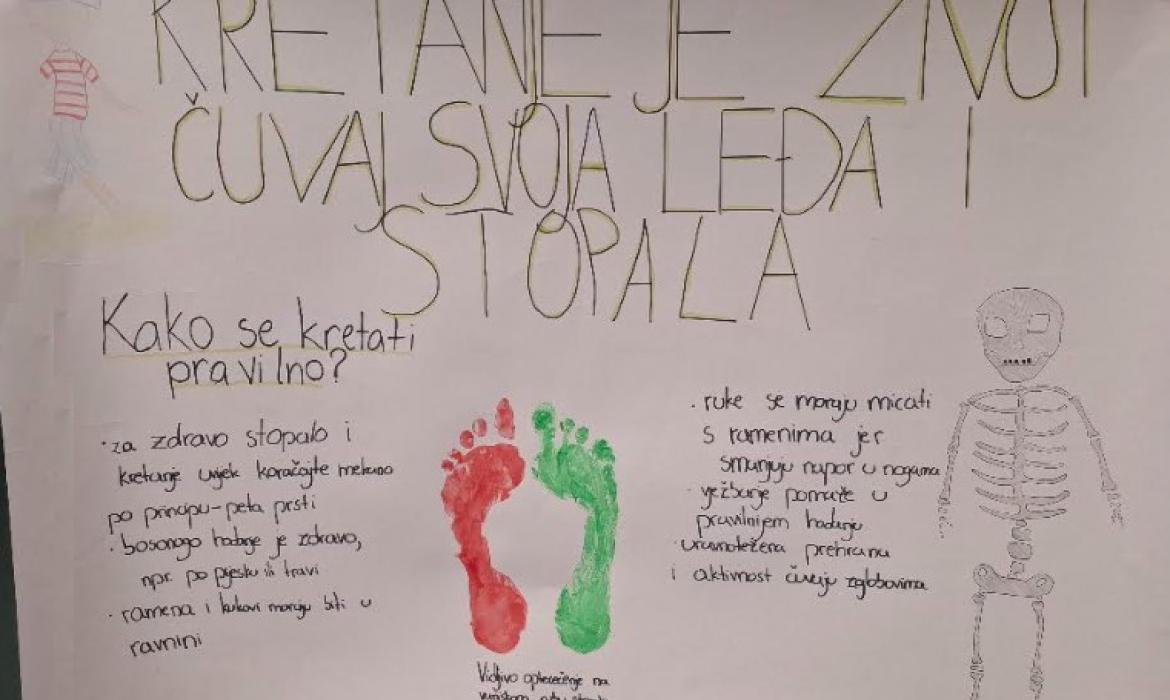 KRETANJE JE ŽIVOT
ČUVAJ SVOJA LEĐA I
STOPALA
Kako se kretati
pravilno?
· za zdravo stopalo i
kretanje uvijek koračajte mekano
po principu-peta prsti
· bosonogo hodanje je zdravo,
npr. po pijesku ili travi
· ramena i kukovi moraju biti u
ravnini
· ruke se moraju micati
s ramenima jer
smanjuju napor u nogama
· vježbanje pomaže u
pravilnijem hodanju
· uravnotežena prehrana
i aktivnost čuvaju zglobovima
Vidljivo opterećenje na